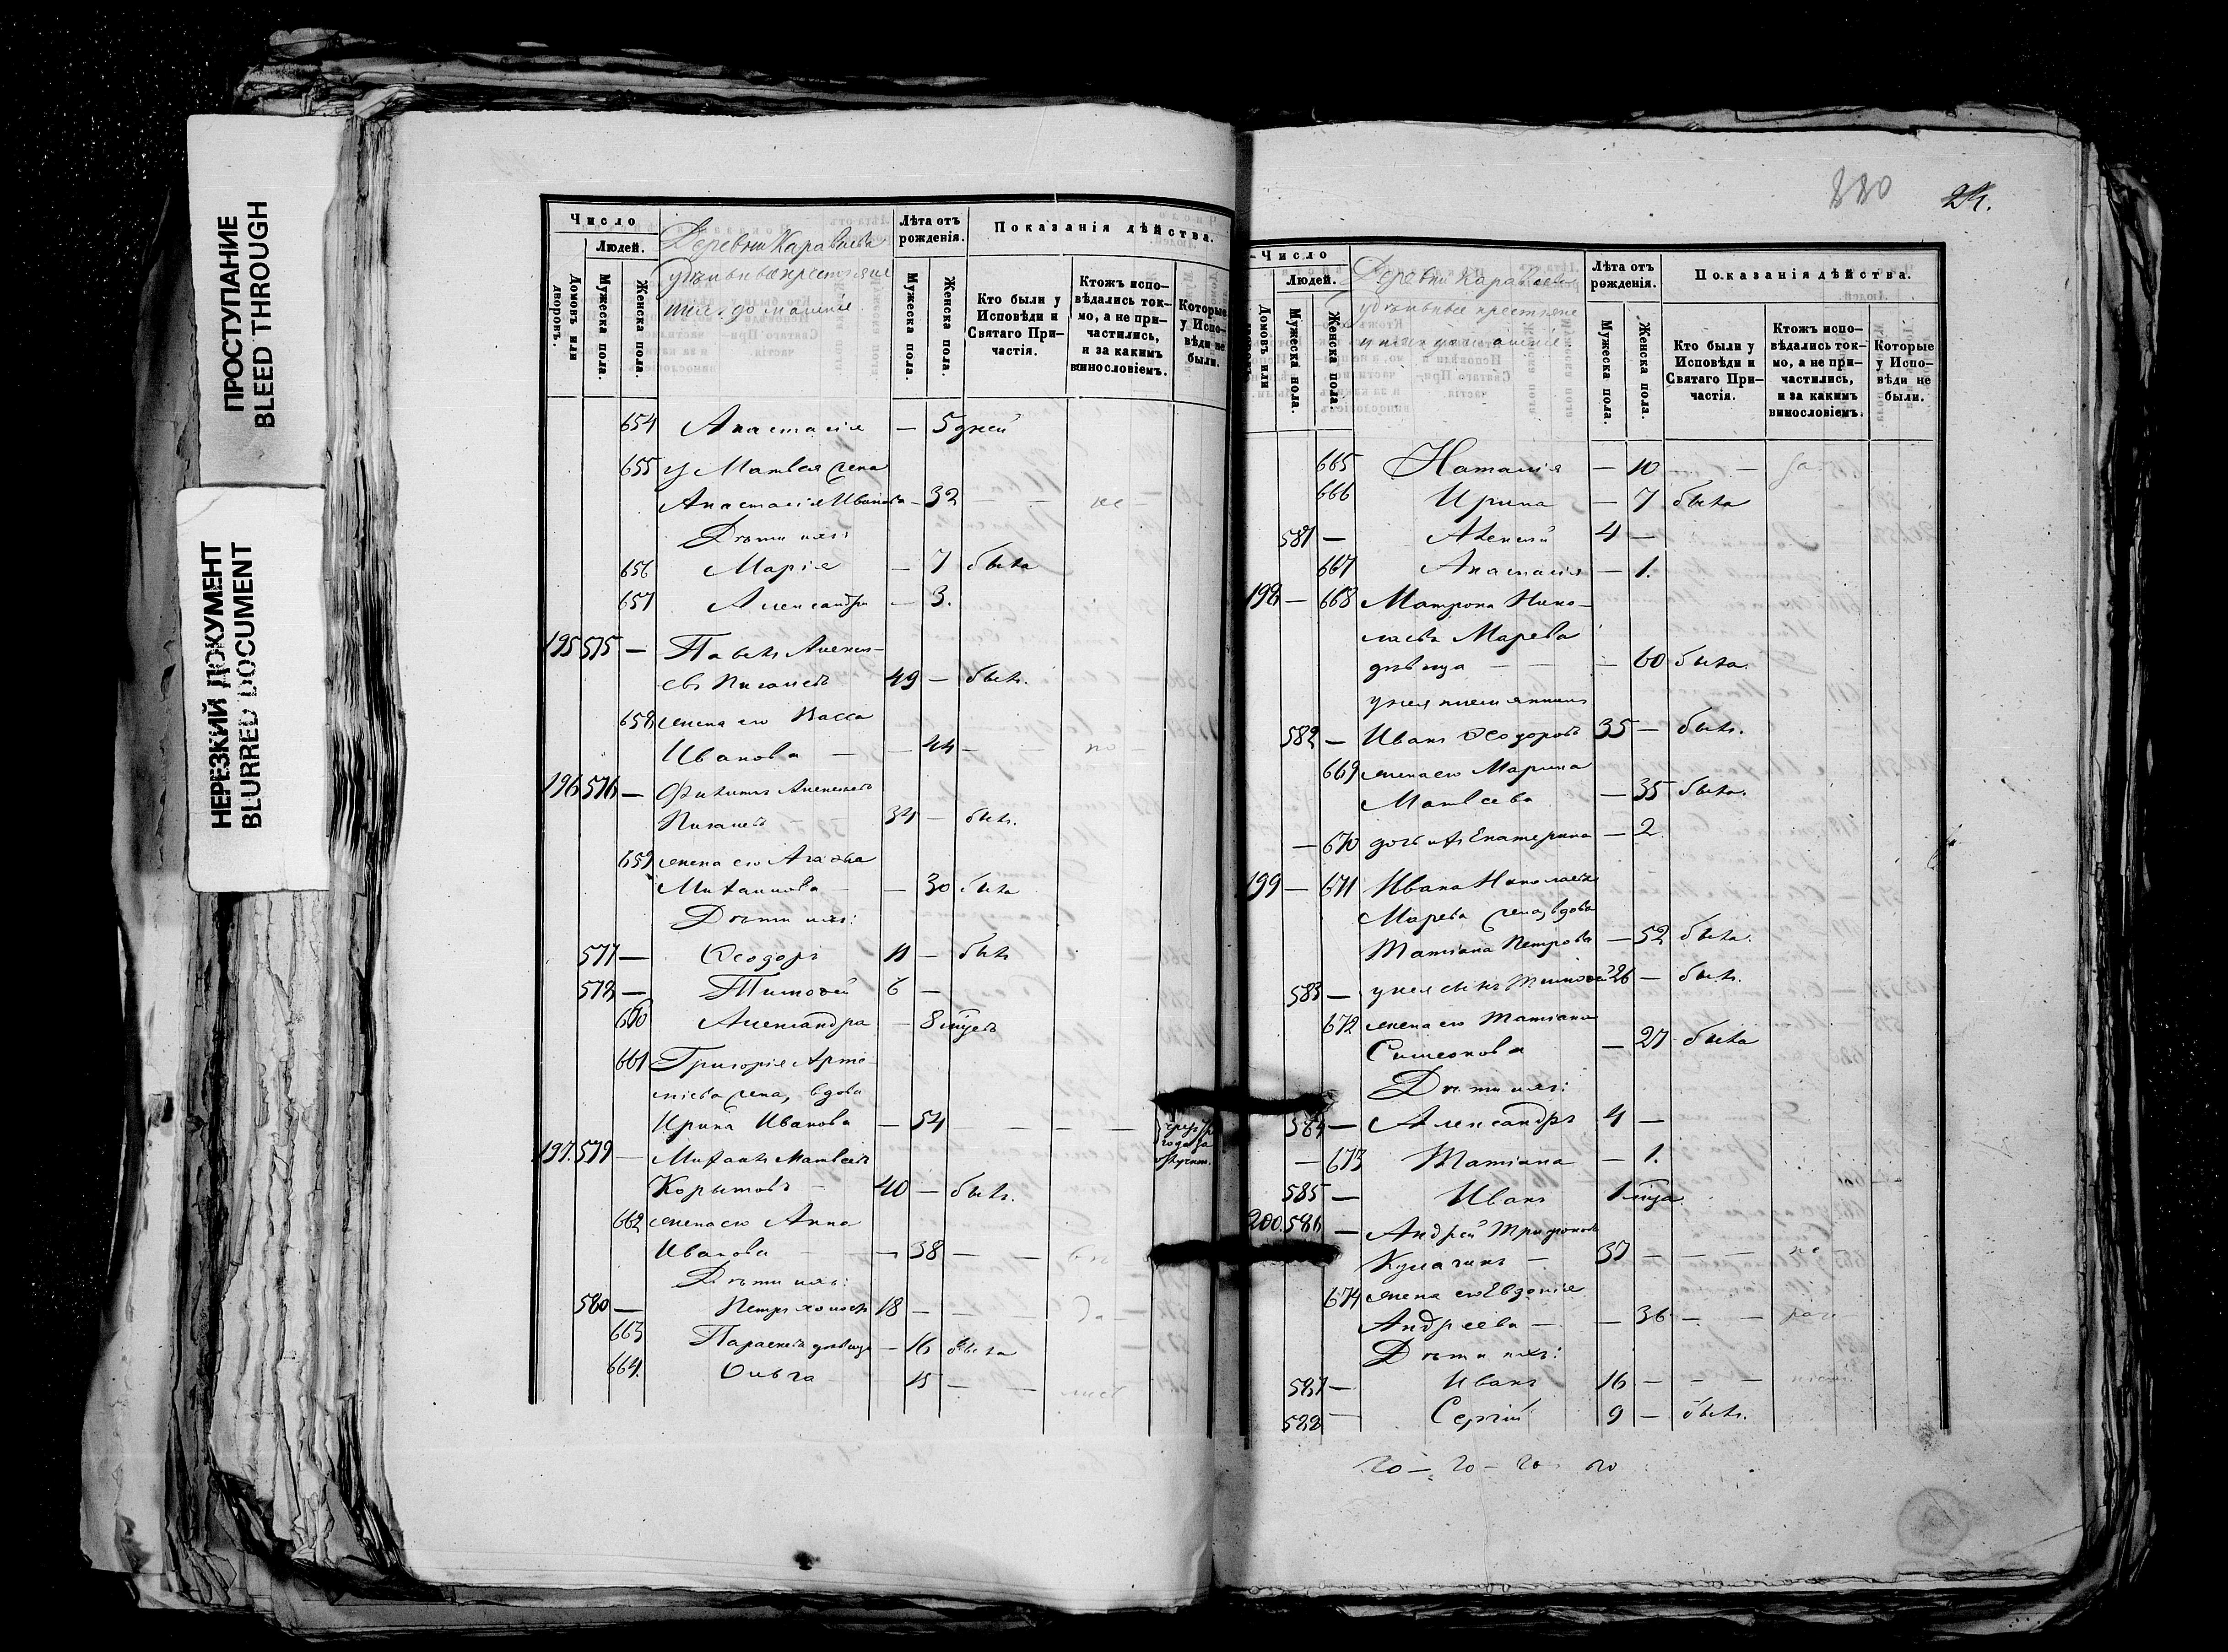 ПРОСТУПАНИЕ
BLEED THROUGH
НЕРЕЗКИЙ ДОКУМЕНТ
BLURRED DOCUMENT
Число
Людей.
Домовъ или дворовъ.
Мужеска пола.
Женска пола.
Деревни Караваева
удѣльные крестьяне
Лѣта отъ рожденія.
Мужеска пола.
Женска пола.
Показанія дѣйства.
Кто были у Исповѣди и Святаго При-частія.
Ктожъ испо-вѣдались ток-мо, а не при-частились, и за какимъ винословіемъ.
Которые у Испо-вѣди не были.
654 Анастасія — 5 дней
655 у Матвея жена
Анастасія Иванова — 32 — —
Дѣти ихъ:
656 Марія — 7 была
657 Александра — 3.
195 575 — Павелъ Алексѣ-
евъ 49 — былъ.
658 жена его Васса
Иванова — — 44 — —
196 576 — Филиппъ Алексѣевъ
34 — былъ.
659 жена его Агафья
Михаилова — — 30 была
Дѣти ихъ:
577 — Ѳеодоръ 11 — былъ
578 — Тимоѳей 6 —
660 Александра — 8 мцевъ
661 Григорія Арте-
міева жена, вдова
Ирина Иванова — 54 — — — —
197. 579 — Михаилъ Матвеевъ
Корытовъ — 40 — былъ.
662 жена его Анна
Иванова — — 38 — —
Дѣти ихъ:
580 — Петръ холостъ 18 — —
663 Параскева дѣвица — 16 была
664. Ольга 15 — —
880 24.
Число
Людей.
Домовъ или
Мужеска пола.
Женска пола.
Деревни Караваева
удѣльные крестьяне
Лѣта отъ рожденія.
Мужеска пола.
Женска пола.
Показанія дѣйства.
Кто были у Исповѣди и Святаго При-частія.
Ктожъ испо-вѣдались ток-мо, а не при-частились, и за какимъ винословіемъ.
Которые у Испо-вѣди не были.
665 Наталія — 10 —
666 Ирина — 7 была
581 — Алексѣй 4 —
667 Анастасія — 1.
198 — 668 Матрона Нико-
лаева Марева
дѣвица — — — 60 была.
у нея племянникъ
582 — Иванъ Ѳеодоровъ 35 — былъ.
669 жена его Марина
Матвеева — 35 была.
— 670 дочь ихъ Екатерина — 2
199 — 671 Ивана Николаева
Марева жена, вдова
Татіана Петрова — 52 была.
583 — у нея сынъ Тимоѳей 26 — былъ.
672 жена его Татіана
Симеонова — 27 была
Дѣти ихъ:
584 — Александръ 4 —
— 673 Татіана — 1.
585 — Иванъ 1 мца
200. 586 — Андрей Трифоновъ
37 — — —
674 жена его Евдокія
Андреева — — 36 — —
Дѣти ихъ:
587 — Иванъ 16 — — —
588 — Сергій 9 — былъ.